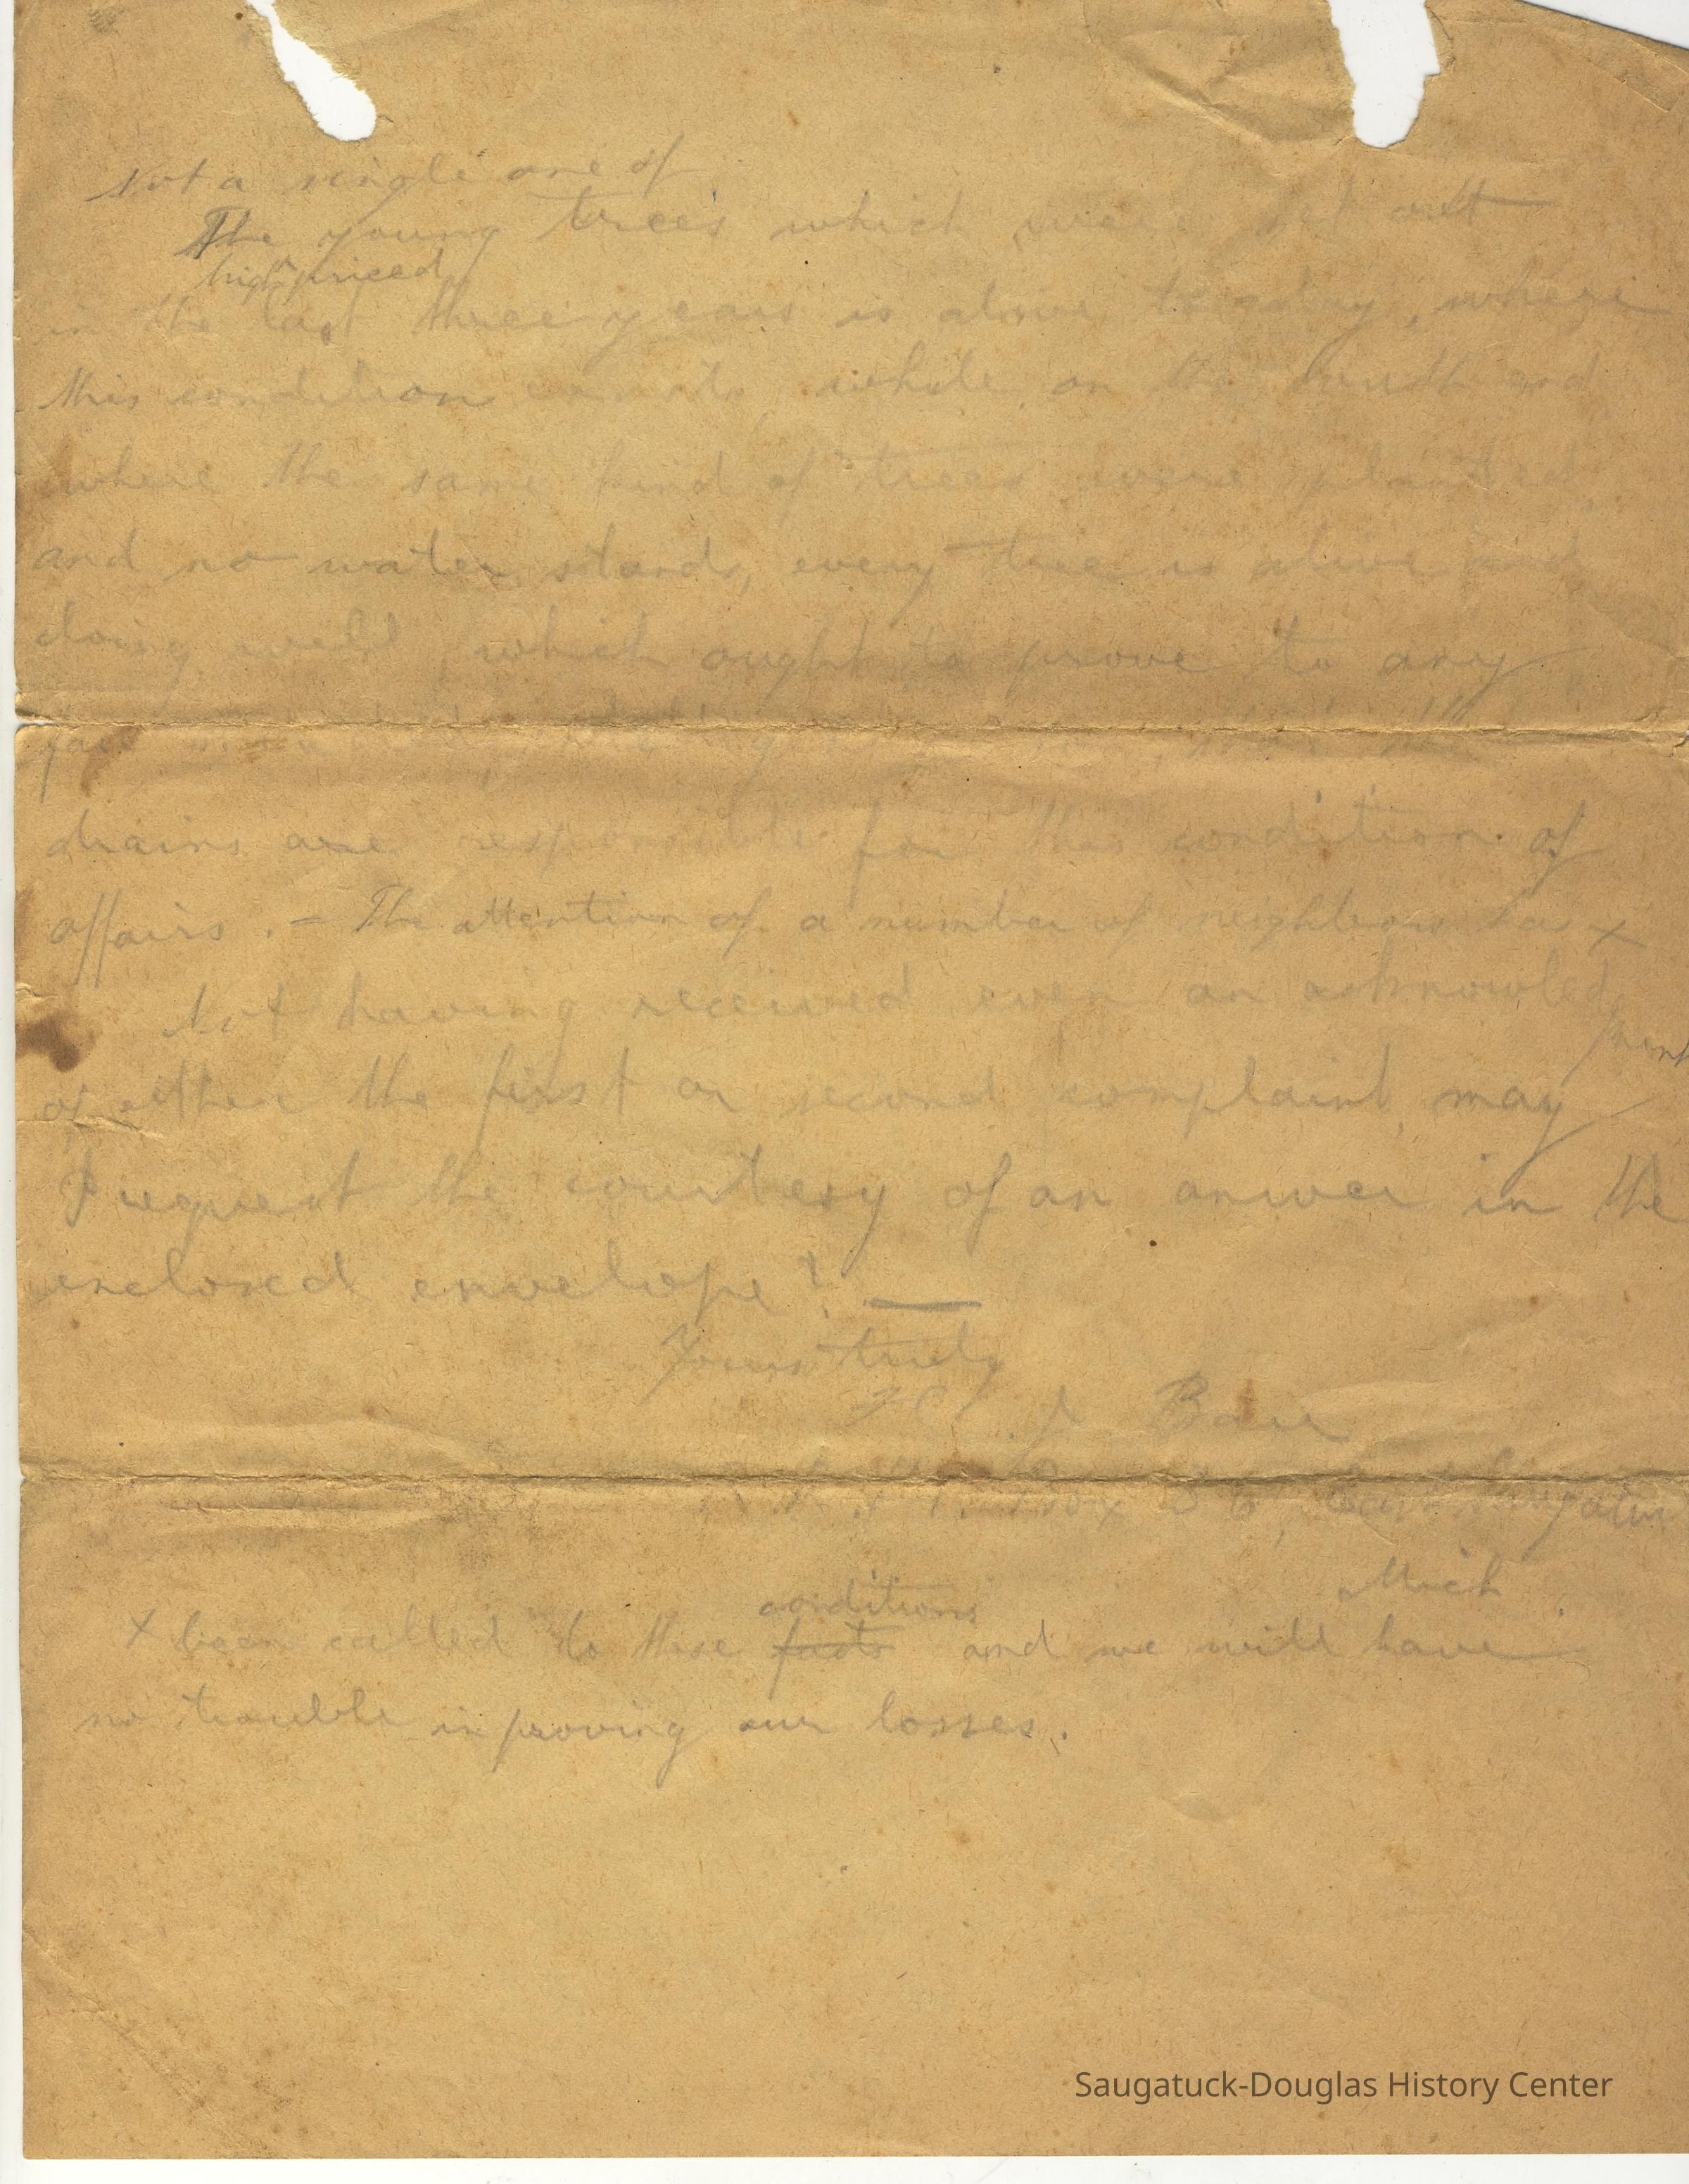 Not a single one of
The young trees which were set out
high priced
in the last three years is alive to-day, where
this condition exists, while on the south end
where the same kind of trees were planted
and no water stands, every tree is alive and
doing well, which ought to prove to any
drains are responsible for this condition of
affairs. - The attention of a number of neighbors has x
Not having received even an acknowledg
ment
of either the first or second complaint, may
I request the courtesy of an answer in the
enclosed envelope? —
Yours truly
Box 36, East Saugatuck
Mich
conditions
x been called to these facts and we will have
no trouble in proving our losses.
Saugatuck-Douglas History Center